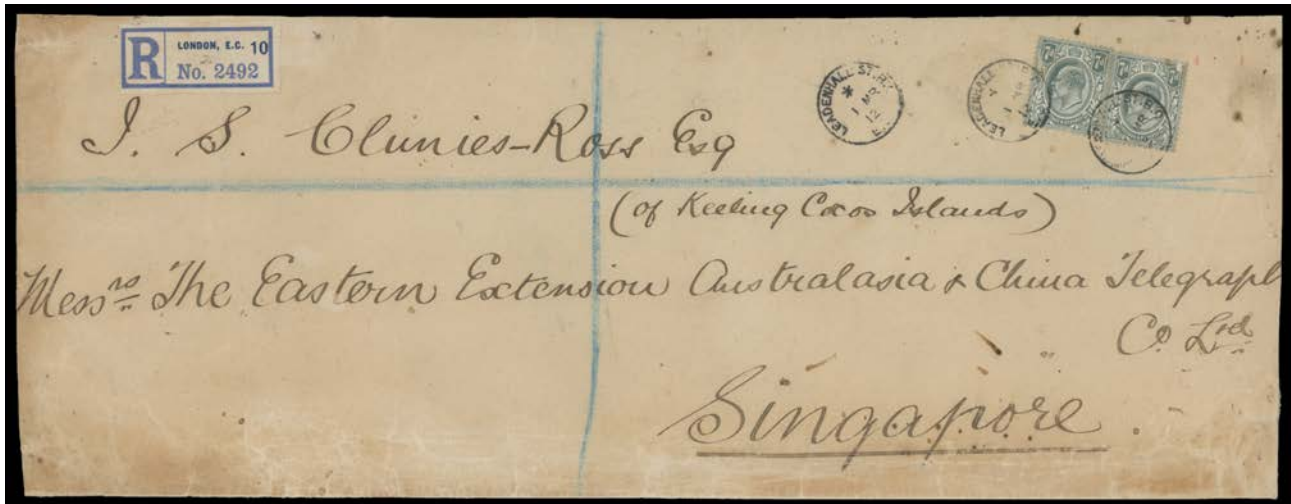 R LONDON, E.C. 10
No. 2492
LEADENHALL ST. B.O.
* 1 MR 12
LEADENHALL ST
J. S. Clunies-Ross Esq
(of Keeling Cocos Islands)
Messrs The Eastern Extension Australasia & China Telegraph
Co Ltd
Singapore